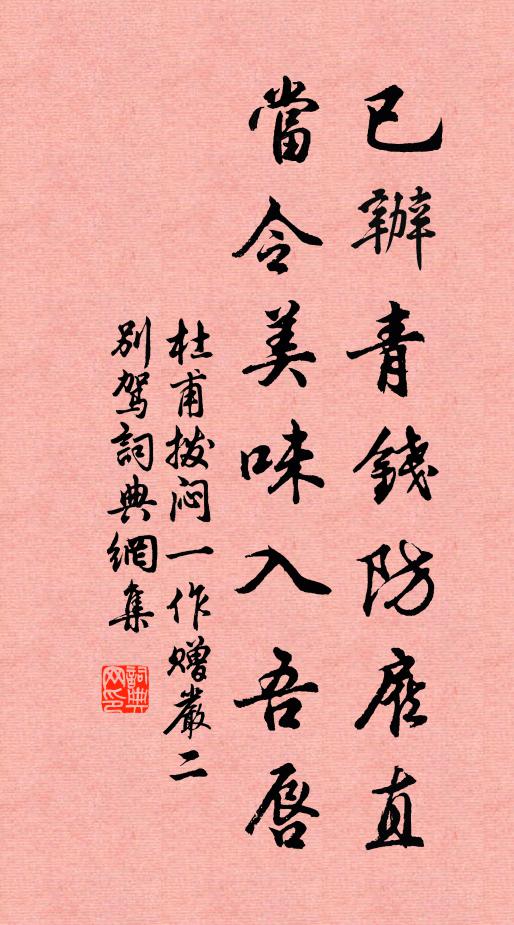 已辦青錢防雇直
當令美味入吾唇
杜甫撥闷一作赠嚴二
別駕詞典網集
詞典网印